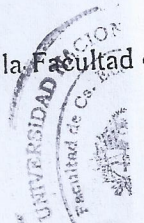 la Facultad
UNIVERSIDAD
Facultad de Cs.